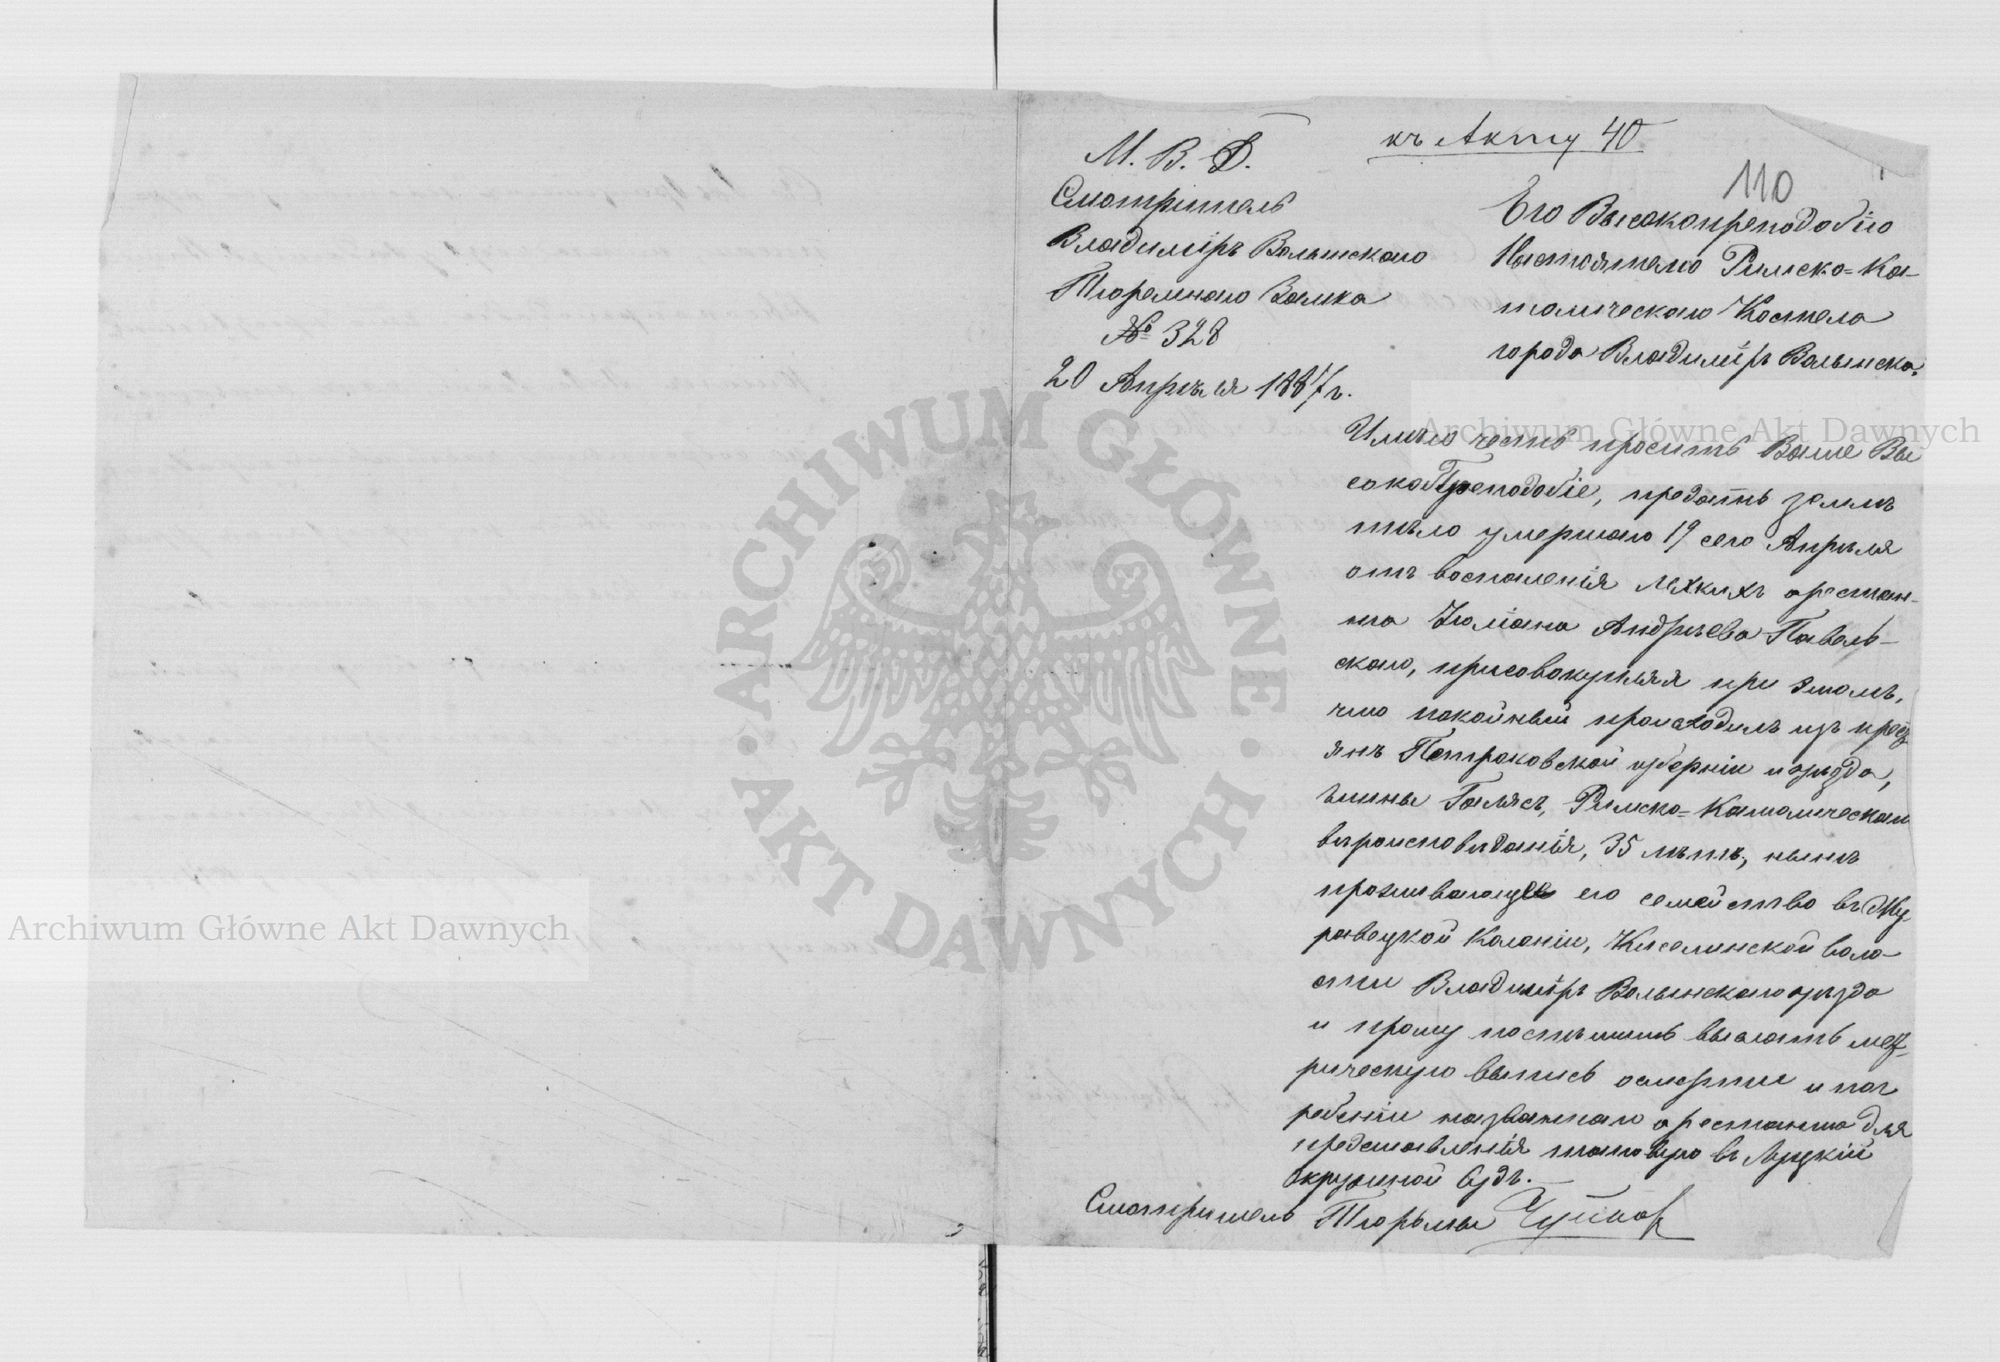 М. В. Д.
Смотритель
Владиміръ Волынскаго
Тюремнаго Замка
№ 328
20 Апрѣля 1887 г.
къ Акту 40
110
Его Высокопреподобію
Настоятелю Римско-Ка-
толическаго Костела
города Владиміръ Волынска.
Имѣю честь просить Ваше Вы
сокоПреподобіе, предать землѣ
тѣло умершаго 19 сего Апрѣля
отъ воспаленія легкихъ арестан-
та Юліана Андрѣева Павель-
скаго, присовокупляя при этомъ,
что покойный происходилъ изъ крест
янъ Петроковской губерніи и уѣзда,
гмины Римско-Католическаго
вѣроисповѣданія, 35 лѣтъ, нынѣ
проживающее его семейство въ
Колоніи, Киселинской воло-
сти Владиміръ Волынскаго уѣзда
и прошу поспѣшить выслать мет
рическую выпись о смерти и пог
ребеніи названнаго арестанта для
представленія таковую въ Луцкій
окружной Судъ.
Смотритель Тюрьмы
Archiwum Główne Akt Dawnych
Archiwum Główne Akt Dawnych
ARCHIWUM GŁÓWNE AKT DAWNYCH